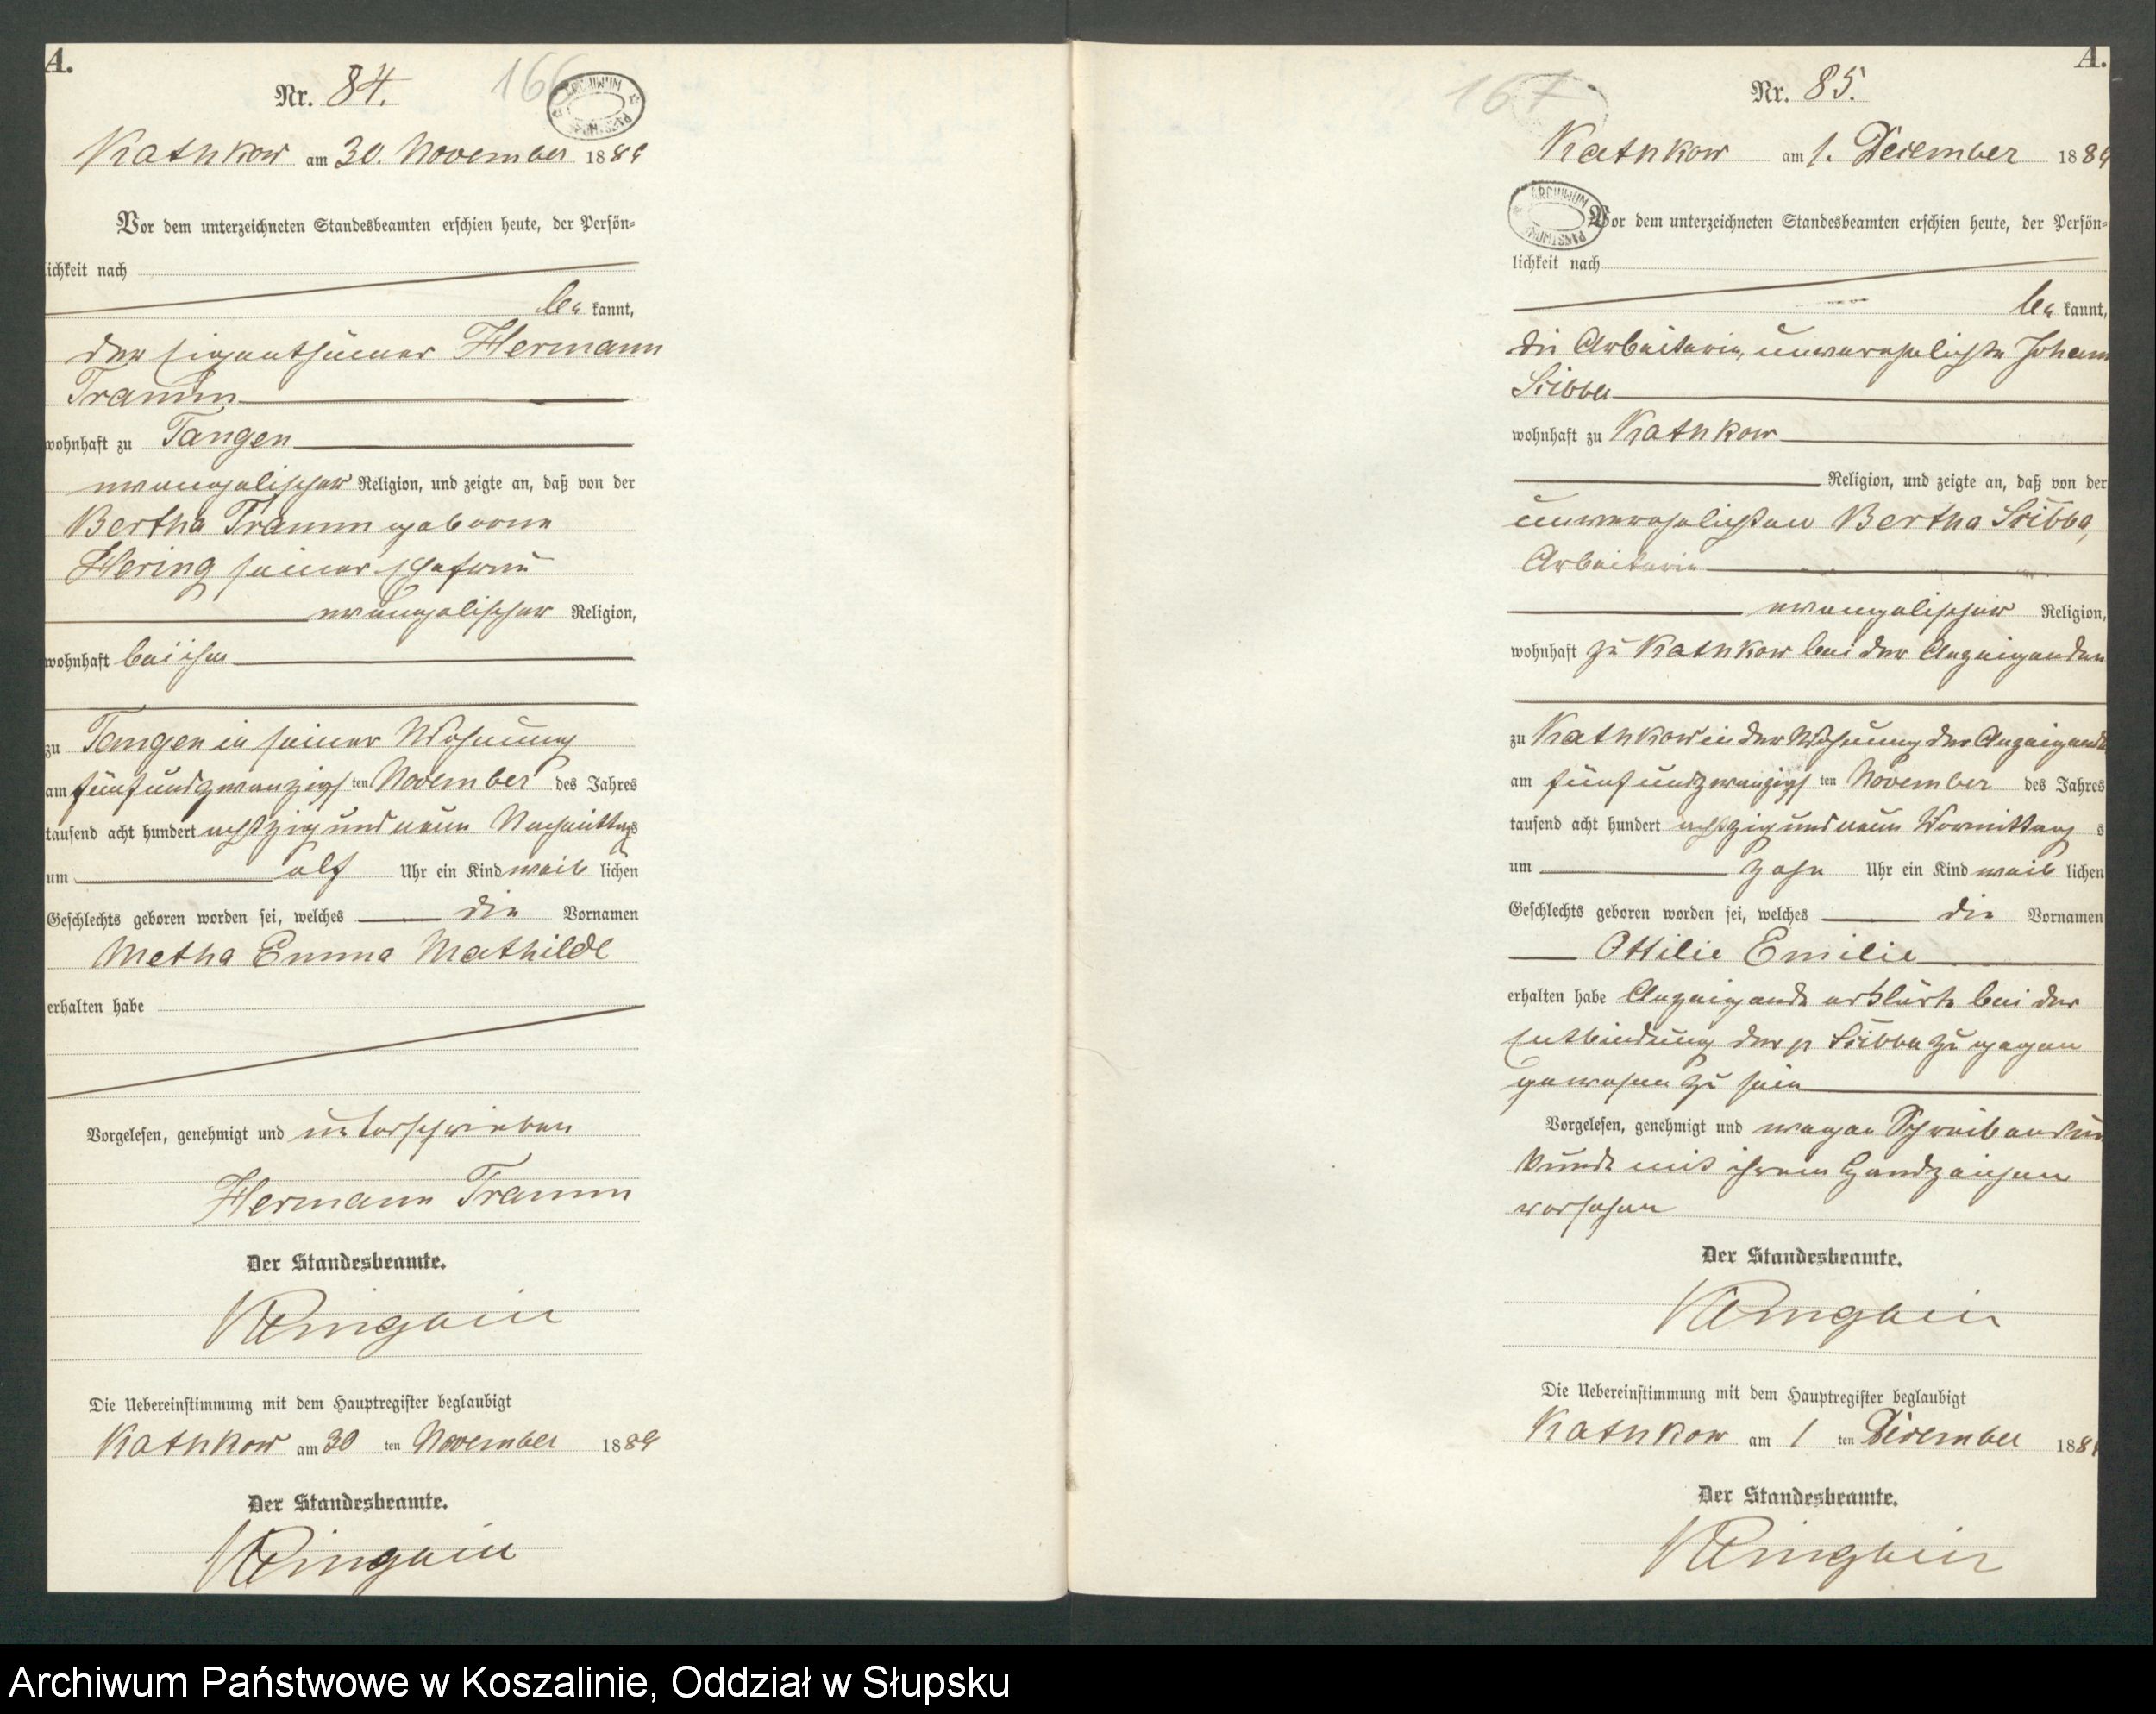 A.
Nr. 84.
166
ARCHIWUM PAŃSTWOWE
Kathkow am 30. November 1889
Vor dem unterzeichneten Standesbeamten erschien heute, der Persön-
lichkeit nach
be kannt,
der Eigenthümer Hermann
Tramm
wohnhaft zu Tangen
evangelischer Religion, und zeigte an, daß von der
Bertha Tramm geborne
Hering seiner Ehefrau
evangelischer Religion,
wohnhaft bei ihm
zu Tangen in seiner Wohnung
am fünf und zwanzigs ten November des Jahres
tausend acht hundert achtzig und neun Nachmittags
um elf Uhr ein Kind weib lichen
Geschlechts geboren worden sei, welches die Vornamen
Metha Emma Mathilde
erhalten habe
Vorgelesen, genehmigt und unterschrieben
Hermann Tramm
Der Standesbeamte.
Die Uebereinstimmung mit dem Hauptregister beglaubigt
Kathkow am 30 ten November 1889
Der Standesbeamte.
A.
Nr. 85.
167
Kathkow am 1. Dezember 1889
ARCHIWUM PAŃSTWOWE
Vor dem unterzeichneten Standesbeamten erschien heute, der Persön-
lichkeit nach
be kannt,
die Arbeiterin, unverehelichte Johann
Stibba
wohnhaft zu Kathkow
Religion, und zeigte an, daß von der
unverehelichten Bertha Stibba,
Arbeiterin
evangelischer Religion,
wohnhaft zu Kathkow bei der Anzeigenden
zu Kathkow in der Wohnung der Anzeigende
am fünf und zwanzigs ten November des Jahres
tausend acht hundert achtzig und neun Vormittag s
um zehn Uhr ein Kind weib lichen
Geschlechts geboren worden sei, welches die Vornamen
Ottilie Emilie
erhalten habe Anzeigende erklärte bei der
Entbindung der p Stibba zu gegen
gewesen zu sein
Vorgelesen, genehmigt und wegen Schreibensun
kunde mit ihrem Handzeichen
versehen
Der Standesbeamte.
Die Uebereinstimmung mit dem Hauptregister beglaubigt
Kathkow am 1 ten Dezember 1889
Der Standesbeamte.
Archiwum Państwowe w Koszalinie, Oddział w Słupsku